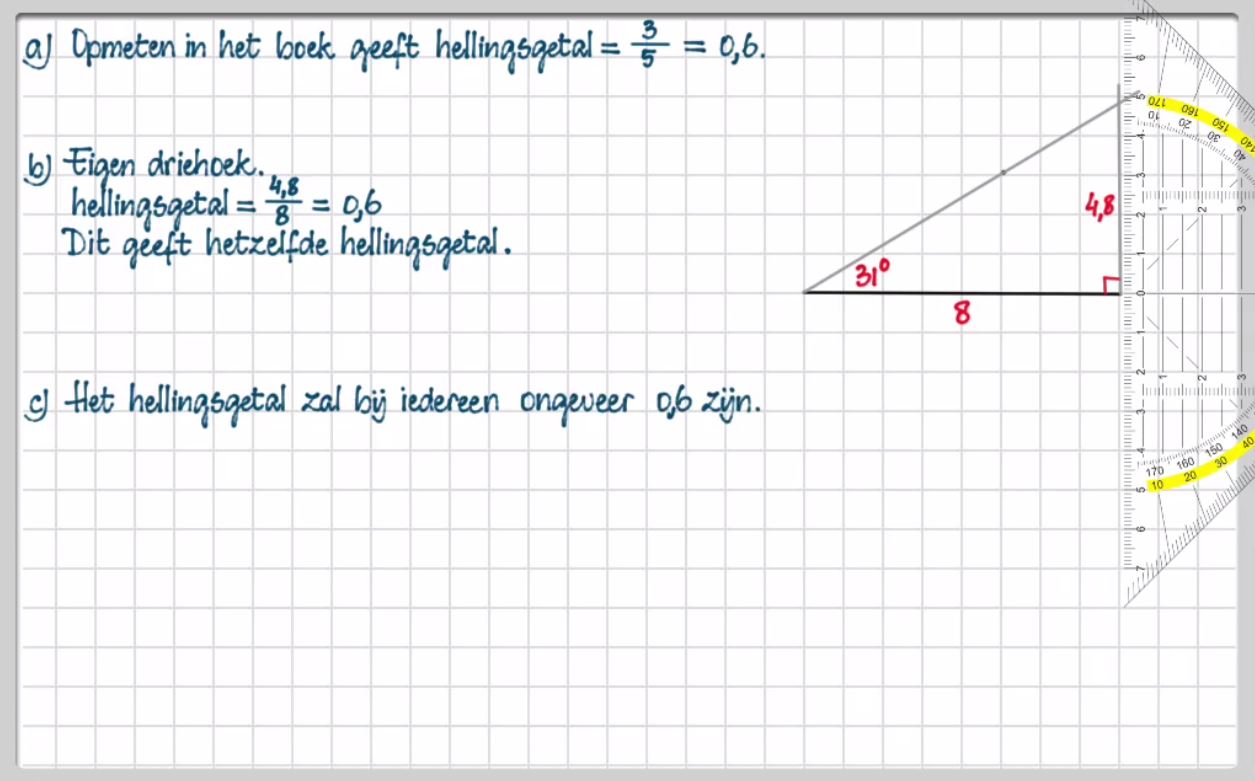 a) Opmeten in het boek geeft hellingsgetal = 3/5 = 0,6.
b) Eigen driehoek.
hellingsgetal = 4,8/8 = 0,6
Dit geeft hetzelfde hellingsgetal.
c) Het hellingsgetal zal bij iedereen ongeveer 0,6 zijn.
4,8
31°
8
7
6
5
4
3
2
1
0
1
2
3
4
5
6
7
170 160 150 140
10 20 30 40
1 2 3
1 2 3
170 160 150 140
10 20 30 40